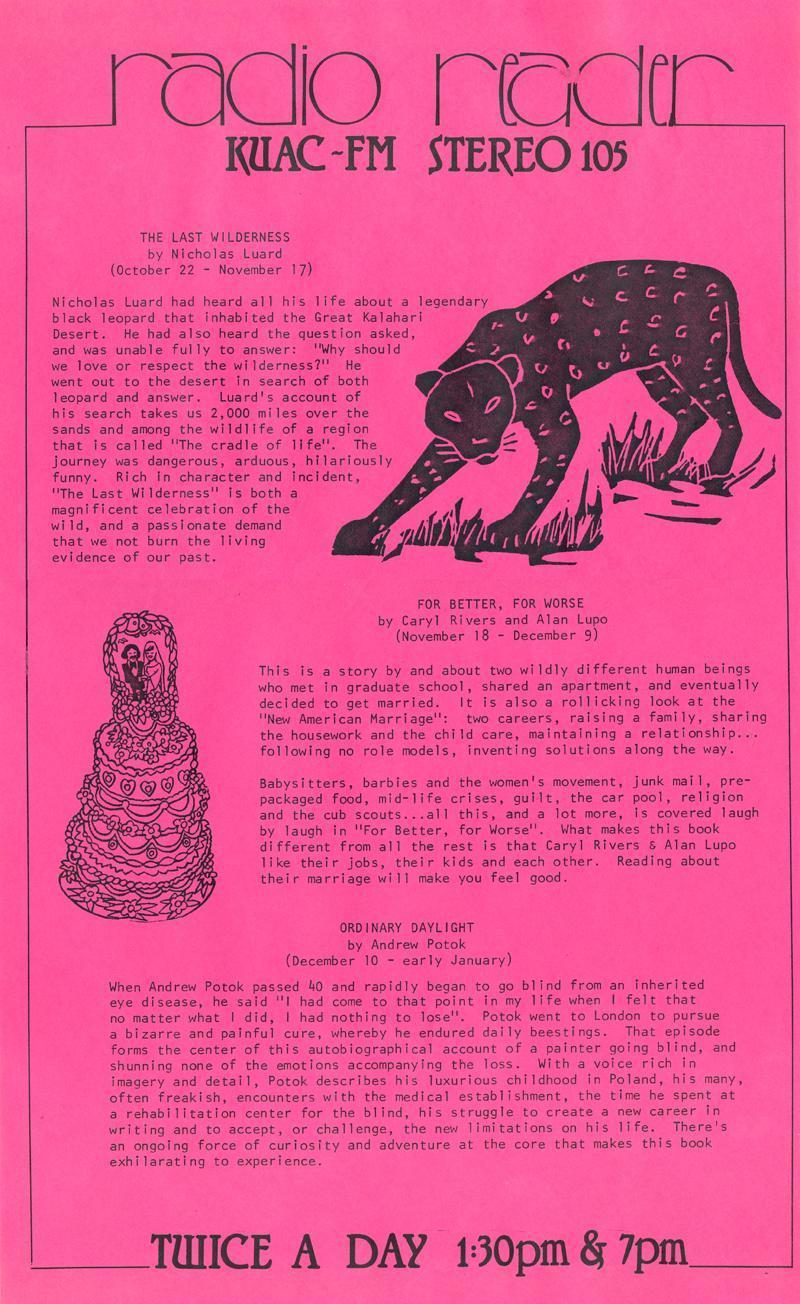 radio reader
KUAC-FM STEREO 105
THE LAST WILDERNESS
by Nicholas Luard
(October 22 - November 17)
Nicholas Luard had heard all his life about a legendary
black leopard that inhabited the Great Kalahari
Desert. He had also heard the question asked,
and was unable fully to answer: "Why should
we love or respect the wilderness?" He
went out to the desert in search of both
leopard and answer. Luard's account of
his search takes us 2,000 miles over the
sands and among the wildlife of a region
that is called "The cradle of life". The
journey was dangerous, arduous, hilariously
funny. Rich in character and incident,
"The Last Wilderness" is both a
magnificent celebration of the
wild, and a passionate demand
that we not burn the living
evidence of our past.
FOR BETTER, FOR WORSE
by Caryl Rivers and Alan Lupo
(November 18 - December 9)
This is a story by and about two wildly different human beings
who met in graduate school, shared an apartment, and eventually
decided to get married. It is also a rollicking look at the
"New American Marriage": two careers, raising a family, sharing
the housework and the child care, maintaining a relationship...
following no role models, inventing solutions along the way.
Babysitters, barbies and the women's movement, junk mail, pre-
packaged food, mid-life crises, guilt, the car pool, religion
and the cub scouts...all this, and a lot more, is covered laugh
by laugh in "For Better, for Worse". What makes this book
different from all the rest is that Caryl Rivers & Alan Lupo
like their jobs, their kids and each other. Reading about
their marriage will make you feel good.
ORDINARY DAYLIGHT
by Andrew Potok
(December 10 - early January)
When Andrew Potok passed 40 and rapidly began to go blind from an inherited
eye disease, he said "I had come to that point in my life when I felt that
no matter what I did, I had nothing to lose". Potok went to London to pursue
a bizarre and painful cure, whereby he endured daily beestings. That episode
forms the center of this autobiographical account of a painter going blind, and
shunning none of the emotions accompanying the loss. With a voice rich in
imagery and detail, Potok describes his luxurious childhood in Poland, his many,
often freakish, encounters with the medical establishment, the time he spent at
a rehabilitation center for the blind, his struggle to create a new career in
writing and to accept, or challenge, the new limitations on his life. There's
an ongoing force of curiosity and adventure at the core that makes this book
exhilarating to experience.
TWICE A DAY 1:30pm & 7pm